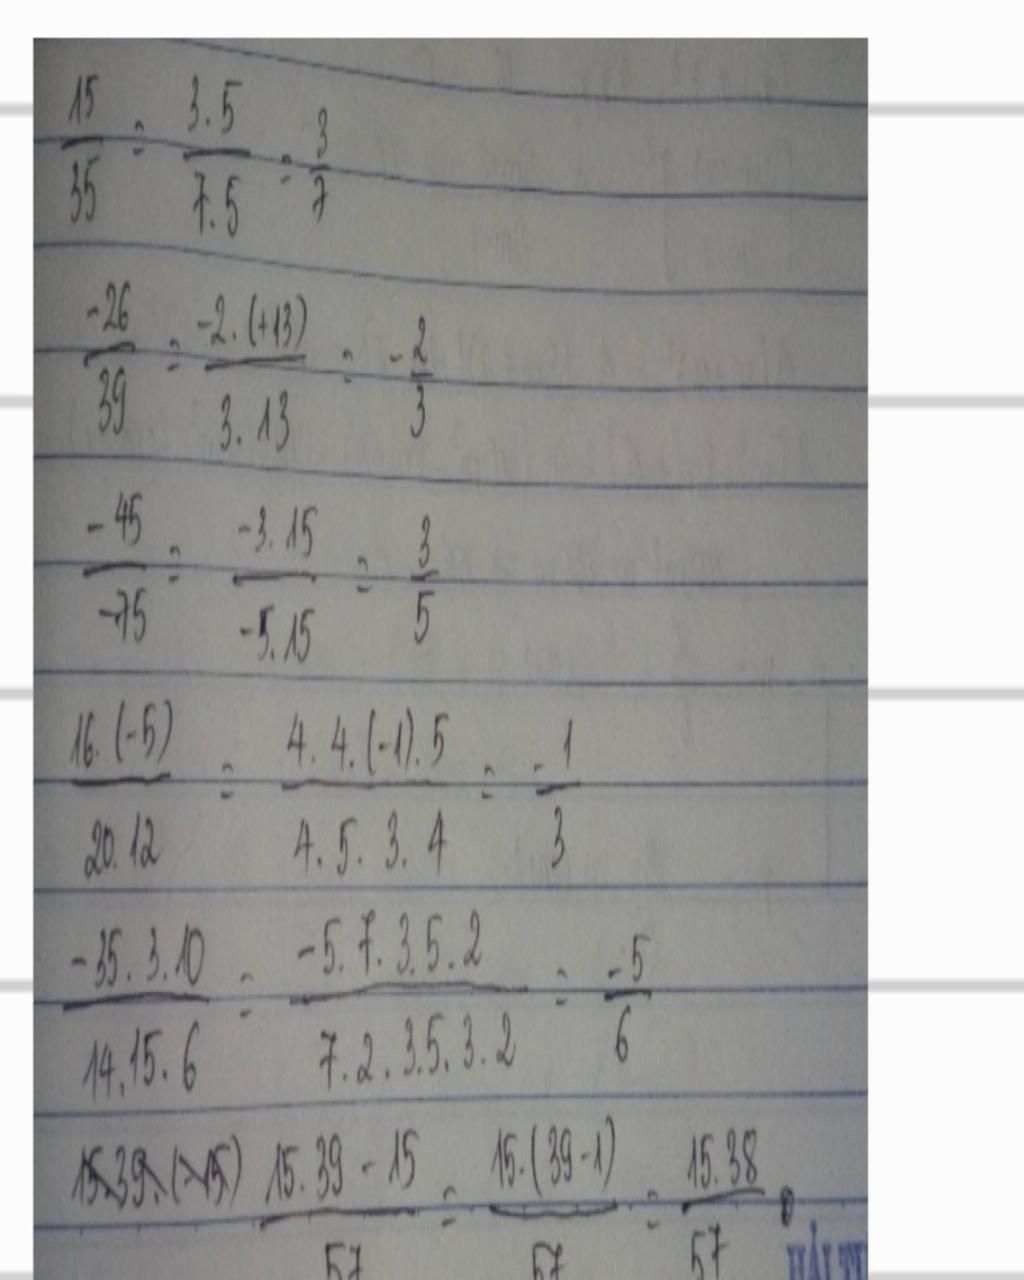 15/35 = 3.5/7.5 = 3/7
-26/39 = -2.(+13)/3.13 = -2/3
-45/-75 = -3.15/-5.15 = 3/5
16.(-5)/20.12 = 4.4.(-1).5/4.5.3.4 = -1/3
-35.3.10/14.15.6 = -5.7.3.5.2/7.2.3.5.3.2 = -5/6
15.39-15/57 = 15.(39-1)/57 = 15.38/57